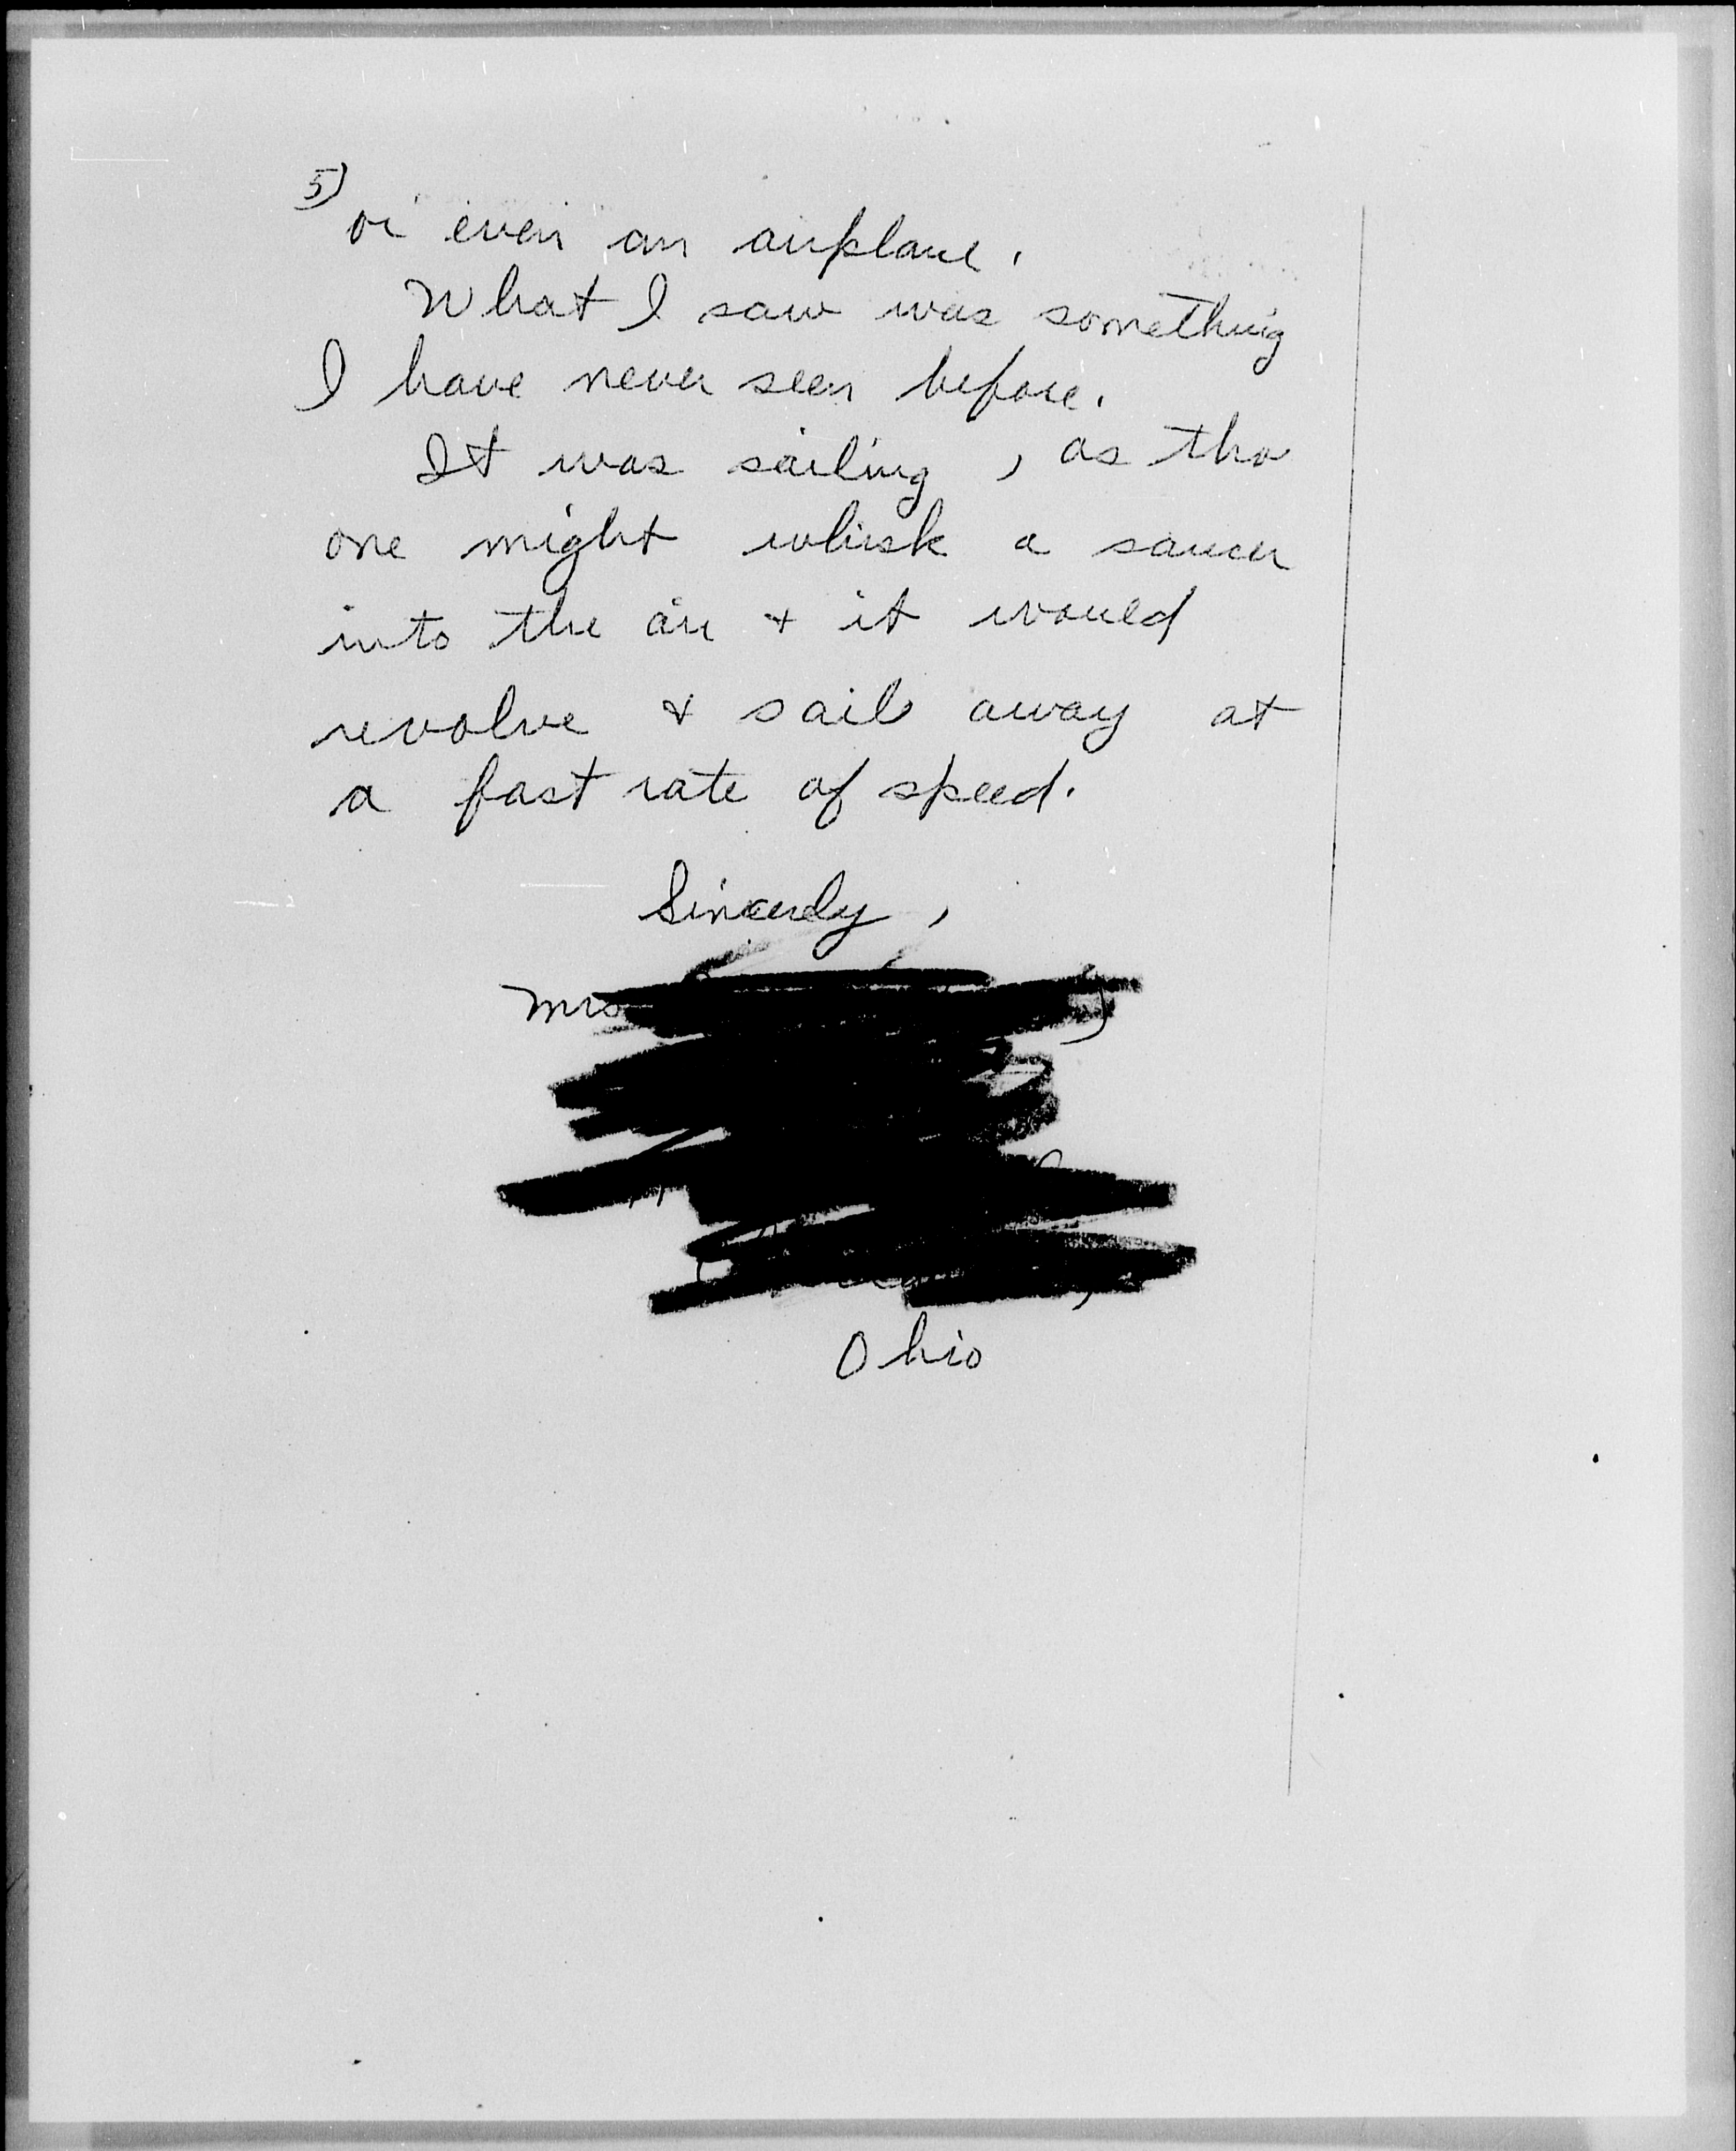 5)
or even an airplane.
What I saw was something
I have never seen before.
It was sailing, as tho
one might whisk a saucer
into the air + it would
revolve & sail away at
a fast rate of speed.
Sincerely,
Mrs
Ohio